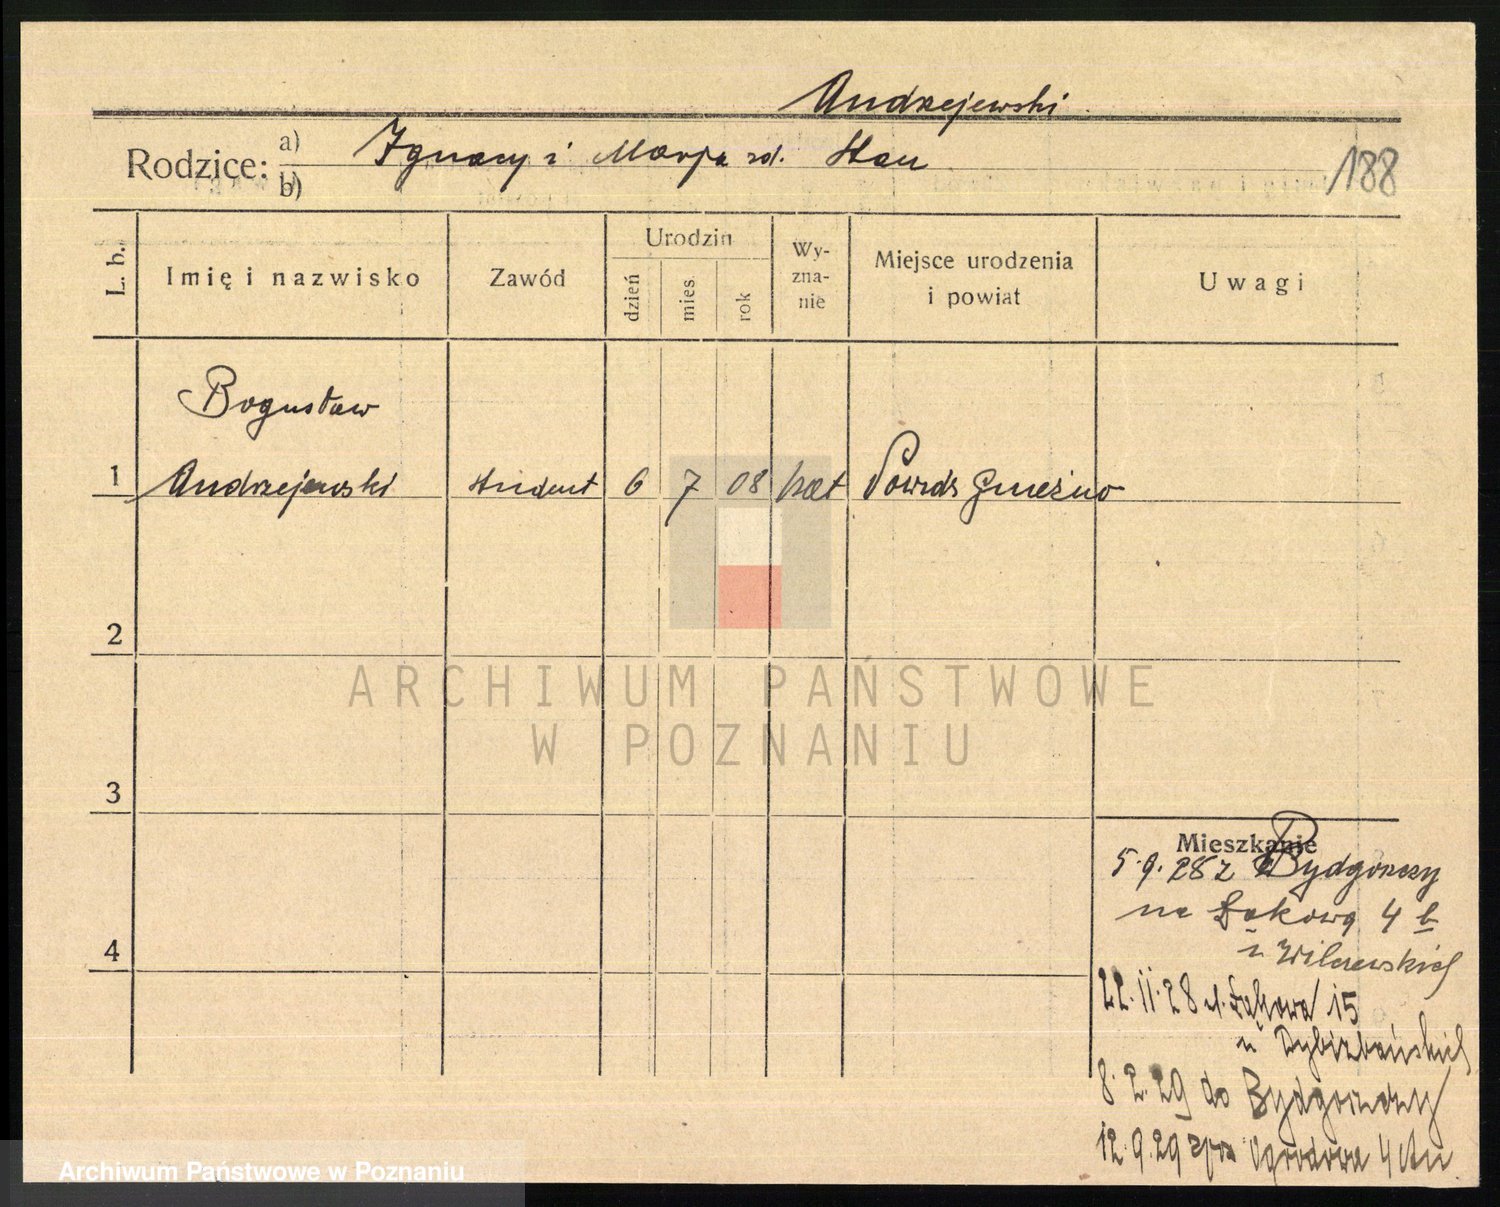 Andrzejewski
Rodzice: a) Ignacy i Marja zd. Stau
b)
188
L. b. Imię i nazwisko Zawód Urodzin dzień mies. rok Wy-zna-nie Miejsce urodzenia i powiat Uwagi
Bogusław
1 Andrzejewski student 6 7 08 kat Powidz Gniezno
2
ARCHIWUM PAŃSTWOWE
W POZNANIU
3
Mieszkanie
5.9.28 z Bydgoszczy
na Łąkową 4 b
u Wilczewskich
4
22.11.28 ul. Łąkowa 15
u
8.2.29 do Bydgoszczy
12.9.29 Ogrodowa 4
Archiwum Państwowe w Poznaniu